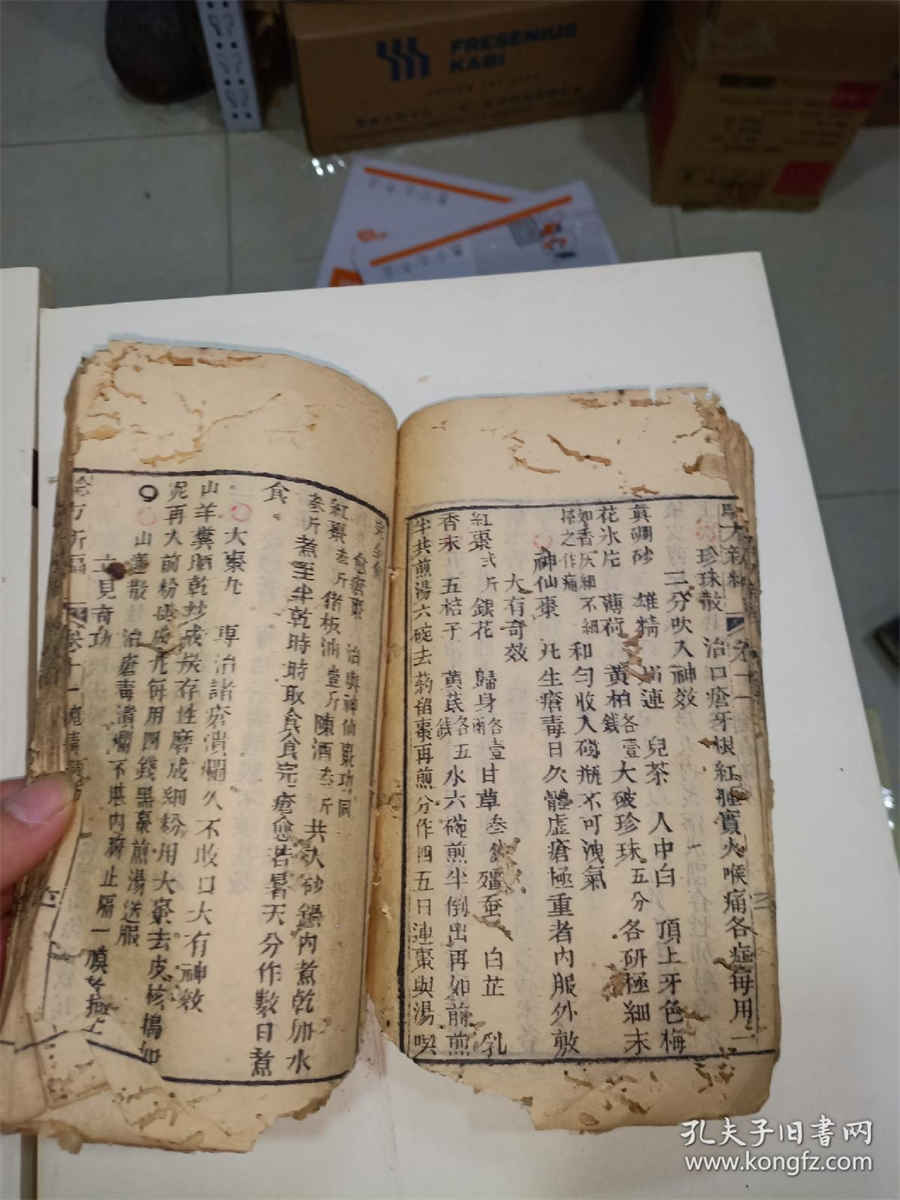 FRESENIUS
KABI
珍珠散 治口瘡牙根紅腫實火喉痛各症每用一
二分吹入神效
真硼砂 雄精 川連 兒茶 人中白 頂上牙色梅
花氷片 薄荷 黃柏各壹錢 大破珍珠五分 各研極細末
和勻收入磁瓶不可洩氣
如香灰細不細
搽之作痛
神仙棗 凡生瘡毒日久體虛瘡極重者內服外敷
大有奇效
紅棗弍斤 銀花 歸身各壹兩 甘草叁錢 殭蚕 白芷 乳
香末 五棓子 黃芪各五錢 水六碗煎半倒出再如前煎
半共煎湯六碗去葯留棗再煎分作四五日連棗與湯喫
愈瘡棗 治與神仙棗功同
紅棗叁斤 猪板油壹斤 陳酒叁斤 共入砂鍋內煮乾加水
叁斤煮至半乾時時取食食完瘡愈若暑天分作數日煮
食
大棗丸 專治諸瘡潰爛久不收口大有神效
山羊糞晒乾炒成炭存性磨成細粉用大棗去皮核搗如
泥再入前粉搗成丸每用四錢黑棗煎湯送服
山蓮散 治瘡毒潰爛不堪內臟止隔一膜
立見奇功
卷十一
孔夫子旧书网
www.kongfz.com